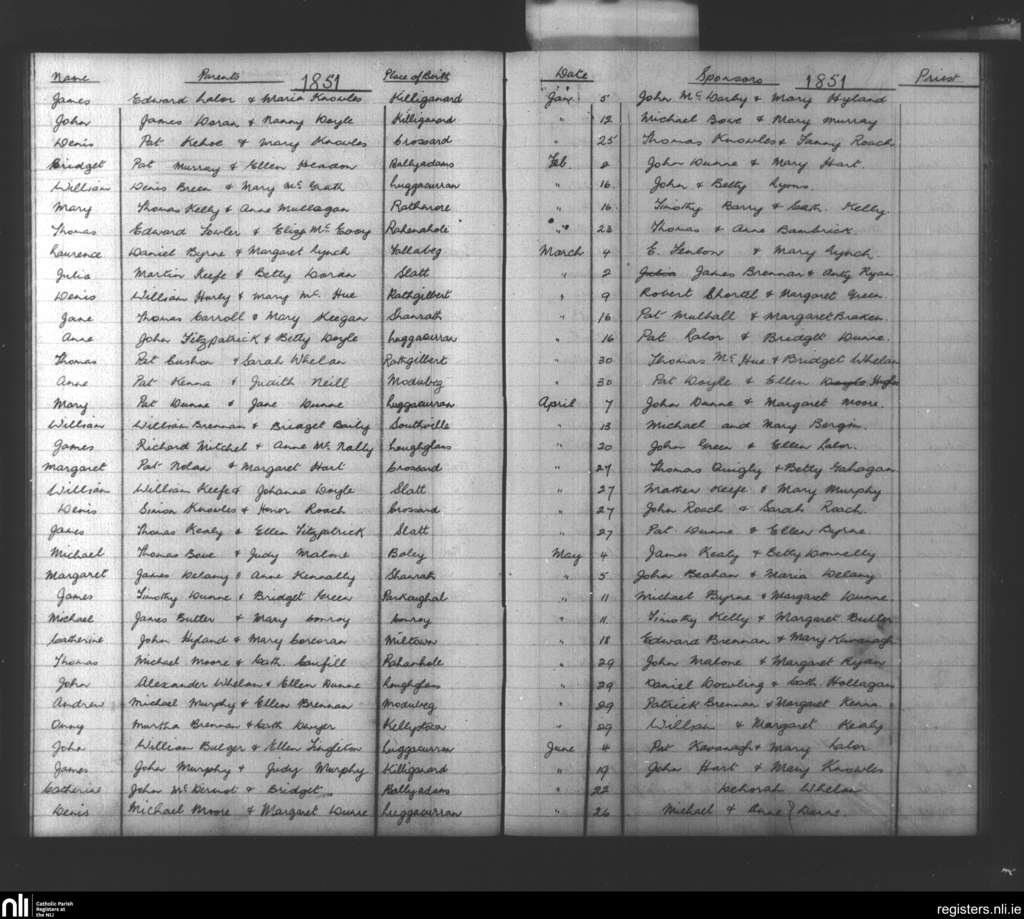 Name Parents 1851 Place of Birth Date Sponsors 1851 Priest
James Edward Lalor & Maria Knowles Killiganard Jan. 5 John McDarby & Mary Hyland
John James Doran & Nanny Doyle Killiganard " 12 Michael Bowe & Mary Murray
Denis Pat Kehoe & Mary Knowles Crossard " 25 Thomas Knowles & Fanny Roach
Bridget Pat Murray & Ellen Headon Ballyadams Feb. 2 John Dunne & Mary Hart.
William Denis Breen & Mary Mc Grath Luggacurran " 16. John & Betty Lyons.
Mary Thomas Kelly & Anne Mullagan Rathmore " 16. Timothy Barry & Cath. Kelly
Thomas Edward Fowler & Eliza Mc Evoy Rahenahole " 23 Thomas & Anne Bambrick.
Laurence Daniel Byrne & Margaret Lynch Tollabeg March 4 E. Fenlon & Mary Lynch.
Julia Martin Keefe & Betty Doran Slatt " 2 Julia James Brennan & Anty Ryan
Denis William Hurley & Mary Mc. Hue Rathgilbert " 9 Robert Shortel & Margaret Green.
Jane Thomas Carroll & Mary Keegan Shanrath " 16 Pat Mulhall & Margaret Braken.
Anne John Fitzpatrick & Betty Doyle Luggacurran " 16 Pat Lalor & Bridget Dunne.
Thomas Pat Cushon & Sarah Whelan Rathgilbert " 30 Thomas Mc Hue & Bridget Whelan
Anne Pat Kenna & Judith Neill Modubeg " 30 Pat Doyle & Ellen Doyle Hughes
Mary Pat Dunne & Jane Dunne Luggacurran April 7 John Dunne & Margaret Moore.
William William Brennan & Bridget Baily Southville " 13 Michael and Mary Bergin.
James Richard Mitchel & Anne Mc Nally Loughglass " 20 John Green & Ellen Lalor.
Margaret Pat Nolan & Margaret Hart Crossard " 27 Thomas Quigly & Betty Gahagan
William William Keefe & Johanna Doyle Slatt " 27 Mather Keefe & Mary Murphy
Denis Simon Knowles & Honor Roach Crossard " 27 John Roach & Sarah Roach.
James Thomas Kealy & Ellen Fitzpatrick Slatt " 27 Pat Dunne & Ellen Byrne.
Michael Thomas Bowe & Judy Malone Boley May 4 James Kealy & Betty Donnelly
Margaret James Delany & Anne Kennally Shanrath " 5 John Beahan & Maria Delany
James Timothy Dunne & Bridget Green Parkaughal " 11 Michael Byrne & Margaret Dunne
Michael James Butler & Mary Conroy Conroy " 11. Timothy Kelly & Margaret Butler
Catherine John Hyland & Mary Corcoran Miltown " 18 Edward Brennan & Mary Kavanagh
Thomas Michael Moore & Cath. Caufill Rahanhole " 29 John Malone & Margaret Ryan
John Alexander Whelan & Ellen Dunne Loughglass " 29 Daniel Dowling & Cath. Hollagan
Andrew Michael Murphy & Ellen Brennan Modubeg " 29 Patrick Brennan & Margaret Kenna
Onny Martha Brennan & Cath Denger Kellystown " 29 William & Margaret Kealy
John William Bulger & Ellen Singleton Luggacurran June 4 Pat Kavanagh & Mary Lalor
James John Murphy & Judy Murphy Killiganard " 19 John Hart & Mary Knowles
Catherine John Mc Dermot & Bridget " Ballyadams " 22 Dehorah Whelan
Denis Michael Moore & Margaret Dunne Luggacurran " 26 Michael & Anne } Dunne.
nli Catholic Parish Registers at the NLI registers.nli.ie